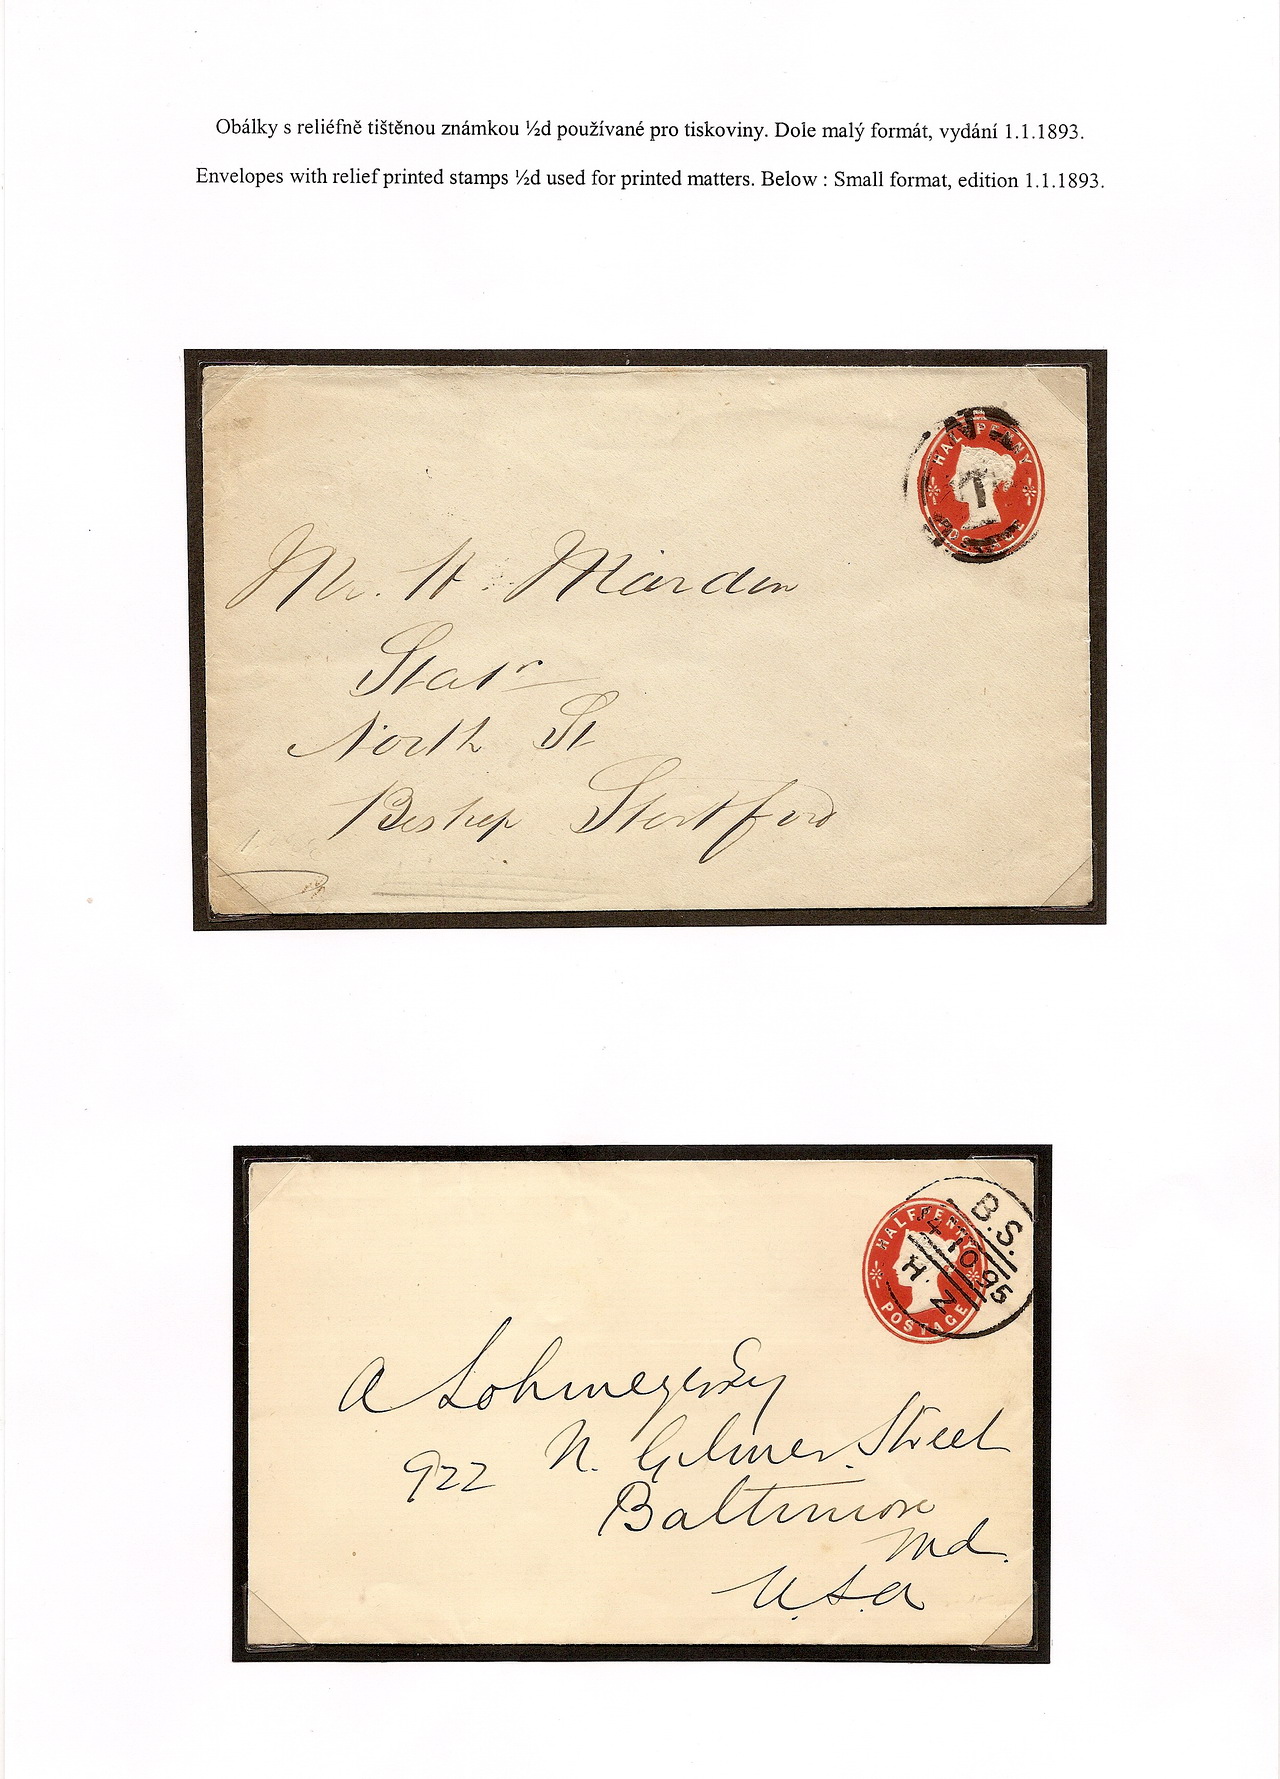 Obálky s reliéfně tištěnou známkou ½d používané pro tiskoviny. Dole malý formát, vydání 1.1.1893.
Envelopes with relief printed stamps ½d used for printed matters. Below : Small format, edition 1.1.1893.
HALFPENNY
POSTAGE
N
T
Mr. H. Marden
Statr
North St
Bishop Stortford
HALFPENNY
POSTAGE
B.S.
4 10 95
H. Z
A Lohmeyer Esq
922 N. Gilmer Street
Baltimore
Md.
U.S.A